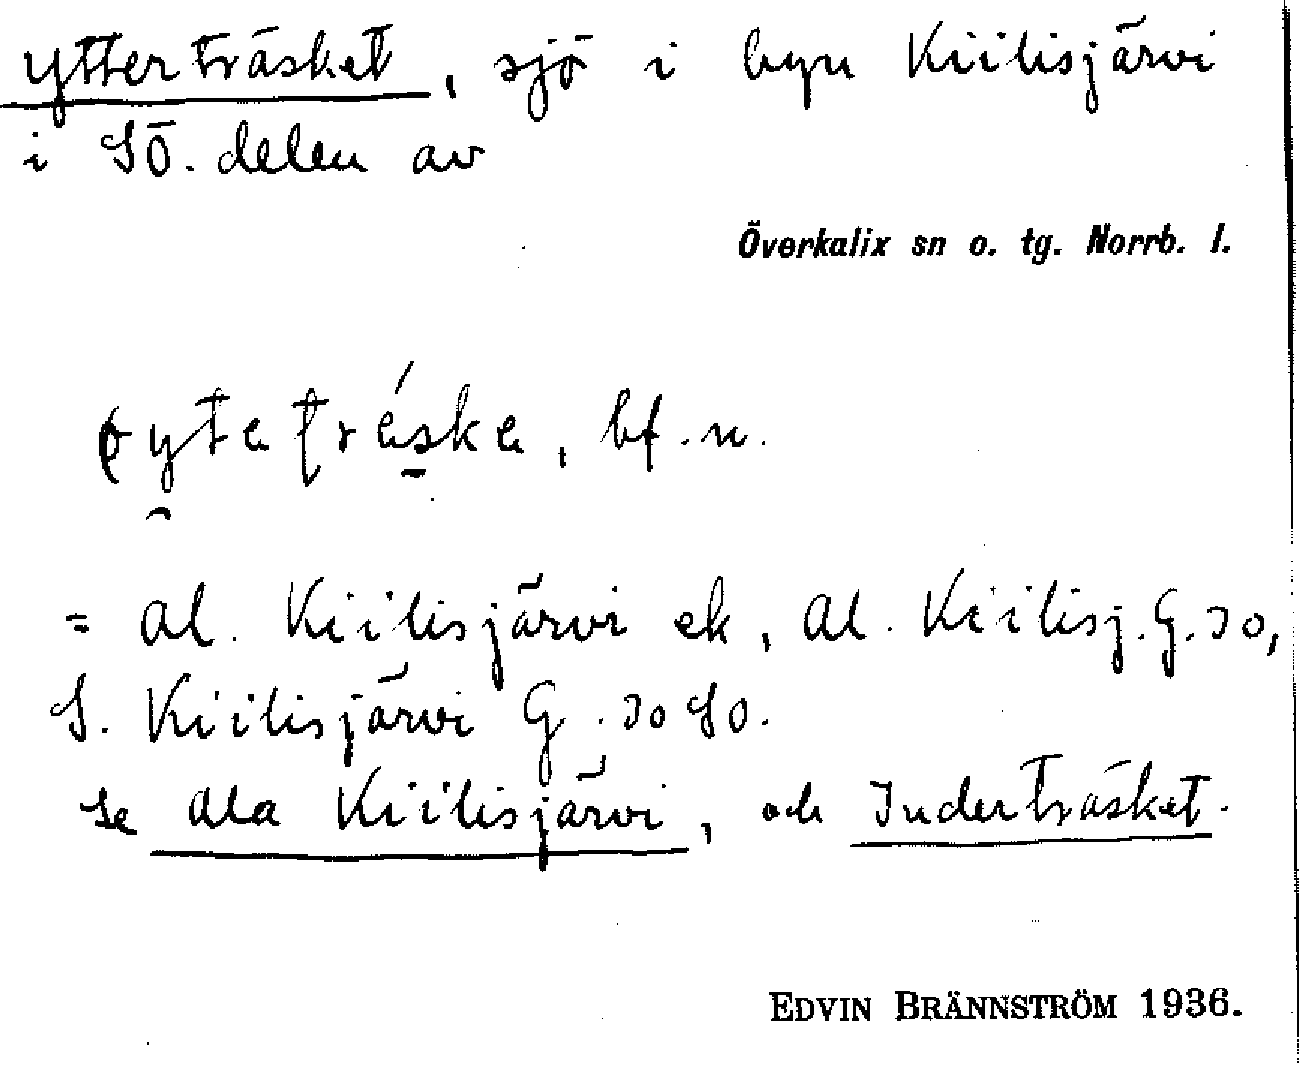 ytterträsket, sjö i byn Kiilisjärvi
i SÖ. delen av
Överkalix sn o. tg. Norrb. l.
bf. n.
= Al. Kiilisjärvi ek, Al. Kiilisj. G. 30,
S. Kiilisjärvi G. 30 SO.
se Ala Kiilisjärvi, och Inderträsket.
EDVIN BRÄNNSTRÖM 1936.